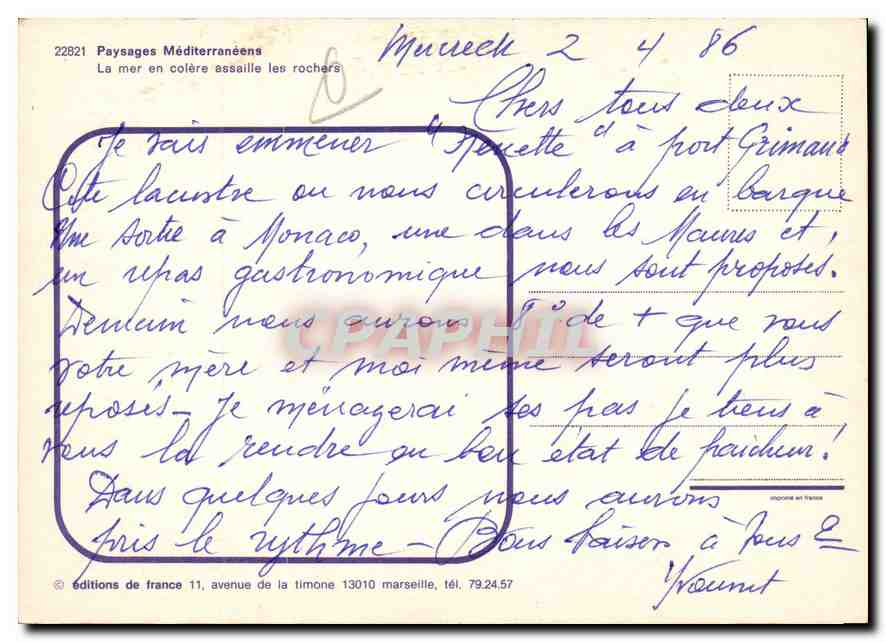 22821 Paysages Méditerranéens
La mer en colère assaille les rochers
2 4 86
Chers tous deux
Je vais emmener " " à port Grimaud
Cité lacustre ou nous circulerons en barque
Une sortie à Monaco, une dans les Maures et,
un repas gastronomique nous sont proposés.
Demain nous aurons 5° de + que vous
votre mère et moi même seront plus
reposés - Je ménagerai ses pas je tiens à
vous la rendre en bon état de fraicheur!
Dans quelques jours nous aurons
pris le rythme - Bons baisers à Tous 2
CPAPHIL
imprimé en france
© éditions de france 11, avenue de la timone 13010 marseille, tél. 79.24.57